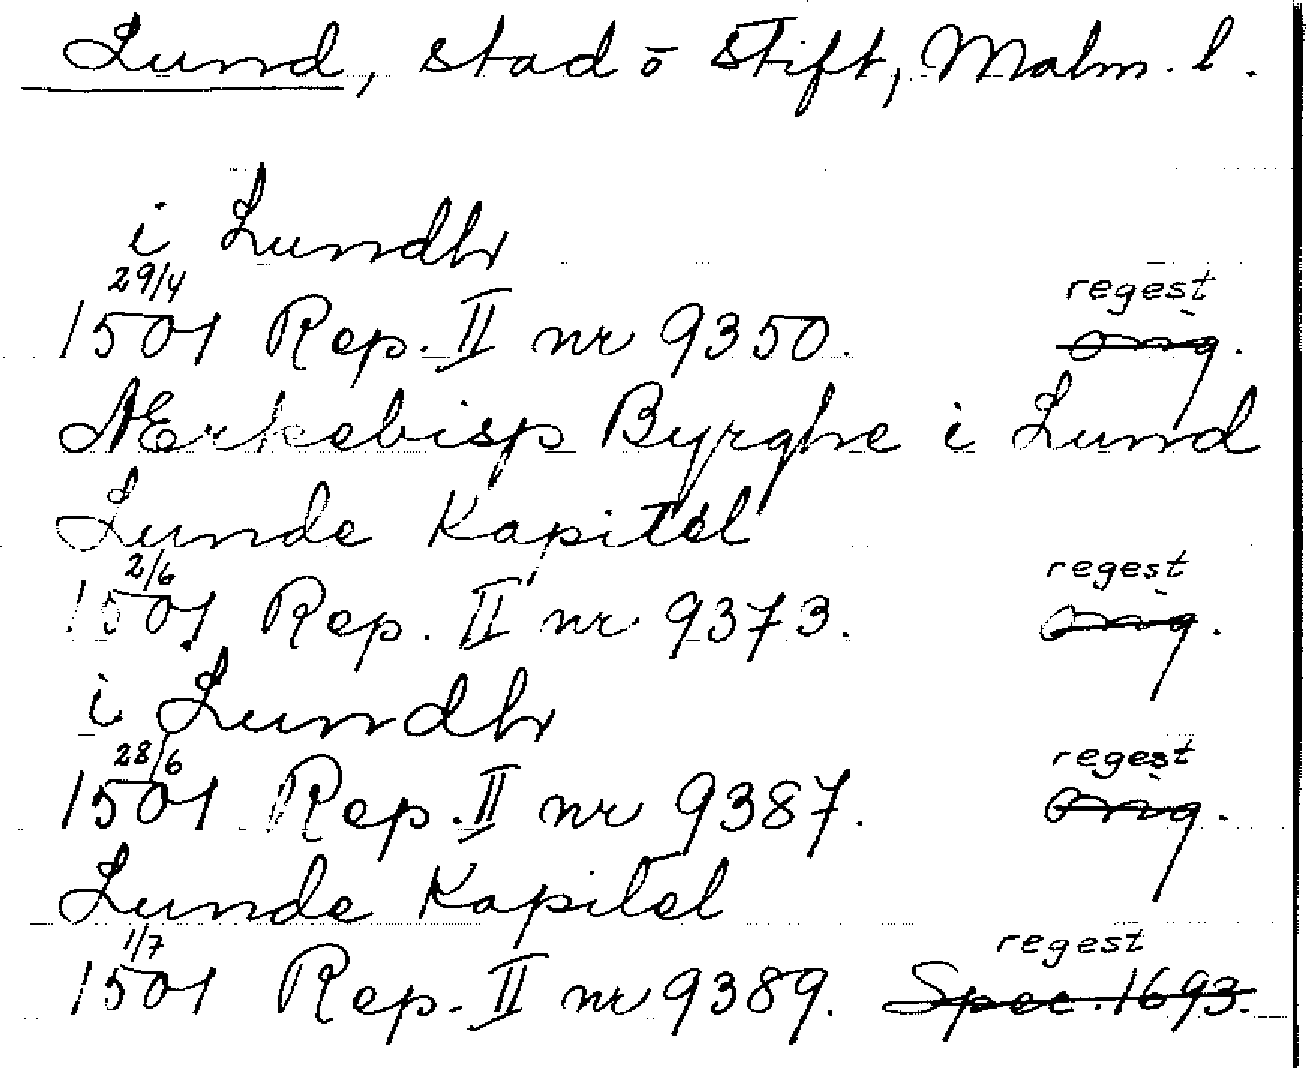 Lund, stad o stift, Malm. l.
i Lundh
29/4 regest
1501 Rep. II nr 9350. omg.
Ærkebisp Byrghe i Lund
Lunde Kapitel
2/6 regest
1501 Rep. II nr 9373. omg.
i Lundh
28/6 regest
1501 Rep. II nr 9387. omg.
Lunde Kapitel
1/7 regest
1501 Rep. II nr 9389. Spec. 1693.